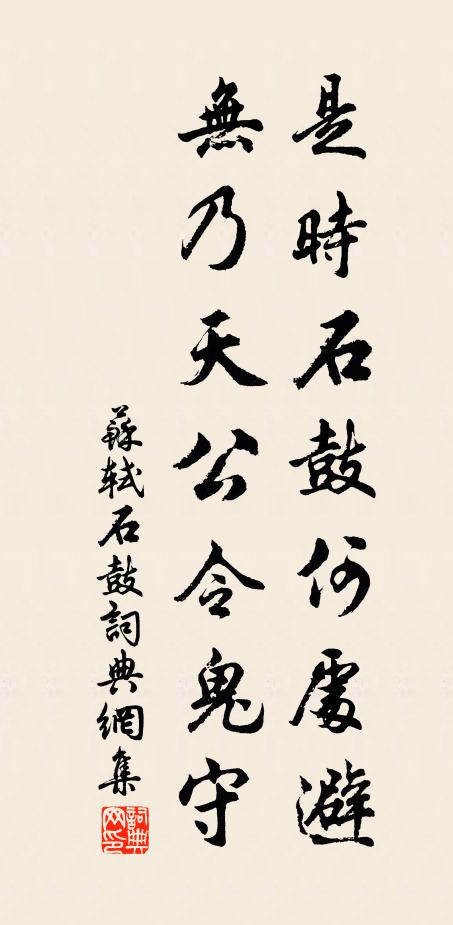 是時石鼓何處避
無乃天公令鬼守
蘇軾石鼓詞典網集
詞典網印